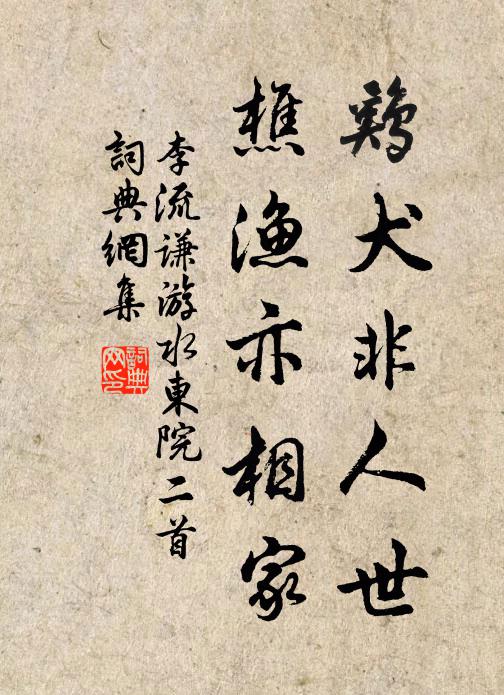 鷄犬非人世
樵漁亦相家
李流謙游水東院二首
詞典網集
詞典網印